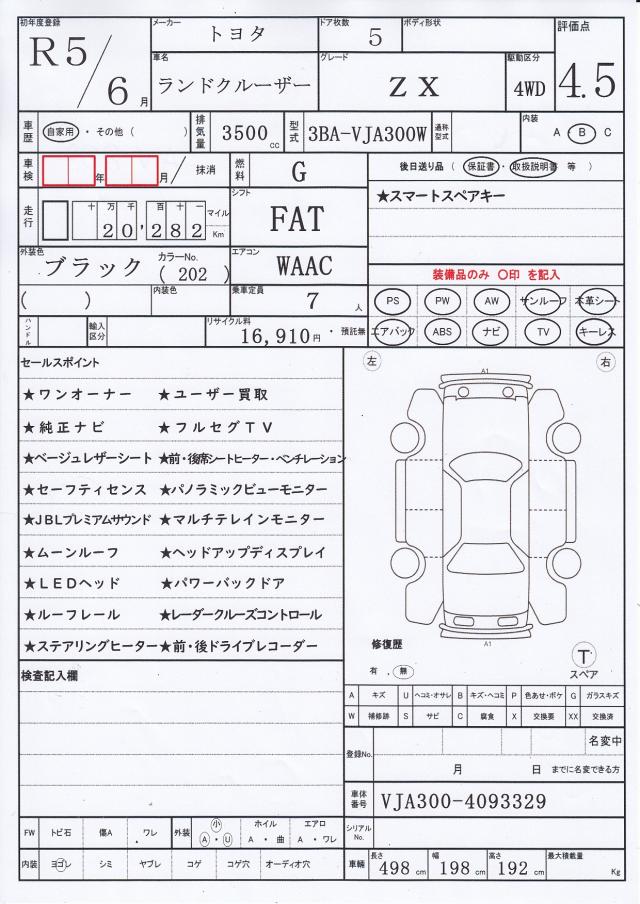 初年度登録 R5/6月
メーカー トヨタ
ドア枚数 5
ボディ形状
評価点 4.5
車名 ランドクルーザー
グレード ZX
駆動区分 4WD
車歴 自家用・その他( )
排気量 3500cc
型式 3BA-VJA300W
通称型式
内装 A・B C
車検 年 月/抹消
燃料 G
後日送り品(保証書・取扱説明書 等)
走行 十万千百十一 20,282 マイル Km
シフト FAT
★スマートスペアキー
外装色 ブラック カラーNo.(202)
エアコン WAAC
装備品のみ 〇印 を記入
( ) 内装色
乗車定員 7人
PS PW AW サンルーフ 本革シート
ハンドル 輸入区分
リサイクル料 16,910円・預託無
エアバック ABS ナビ TV キーレス
セールスポイント
左 右
★ワンオーナー ★ユーザー買取
★純正ナビ ★フルセグTV
★ベージュレザーシート ★前・後席シートヒーター・ベンチレーション
★セーフティセンス ★パノラミックビューモニター
★JBLプレミアムサウンド ★マルチテレインモニター
★ムーンルーフ ★ヘッドアップディスプレイ
★LEDヘッド ★パワーバックドア
★ルーフレール ★レーダークルーズコントロール
★ステアリングヒーター ★前・後ドライブレコーダー
A1
A1
修復歴
有.無
T
スペア
検査記入欄
A キズ U ヘコミ・オサレ B キズ・ヘコミ P 色あせ・ボケ G ガラスキズ
W 補修跡 S サビ C 腐食 X 交換要 XX 交換済
登録No. 名変中
月 日 までに名変できる方
車体番号 VJA300-4093329
シリアルNo.
FW トビ石 傷A ワレ 外装 小 A・U ホイル A・曲 エアロ A・ワレ
内装 ヨゴレ シミ ヤブレ コゲ コゲ穴 オーディオ穴
車輌 長さ 498cm 幅 198cm 高さ 192cm 最大積載量 Kg